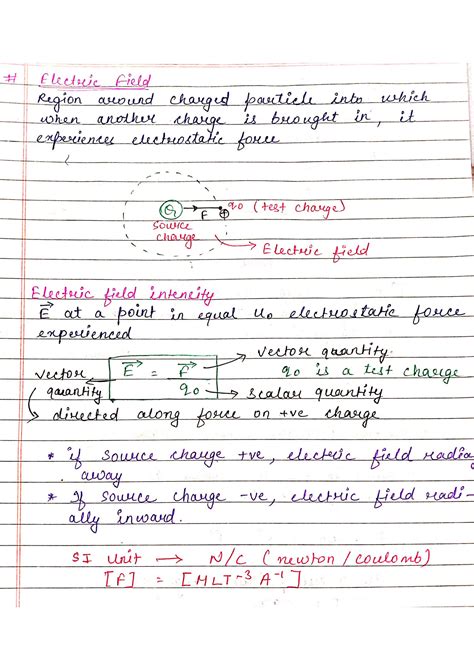 # Electric Field
Region around charged particle into which
when another charge is brought in, it
experiences electrostatic force
Q F q0 (test charge)
+
Source
charge
→ Electric field
Electric field intencity
E→ at a point in equal to electrostatic force
experienced
→ vector quantity
vector E→ = F→ q0 is a test charge
quantity q0 → scalar quantity
directed along force on +ve charge
* if source charge +ve, electric field radia
away
* If source charge -ve, electric field radi-
ally inward.
SI Unit → N/C (newton/coulomb)
[F] = [MLT-3 A-1]